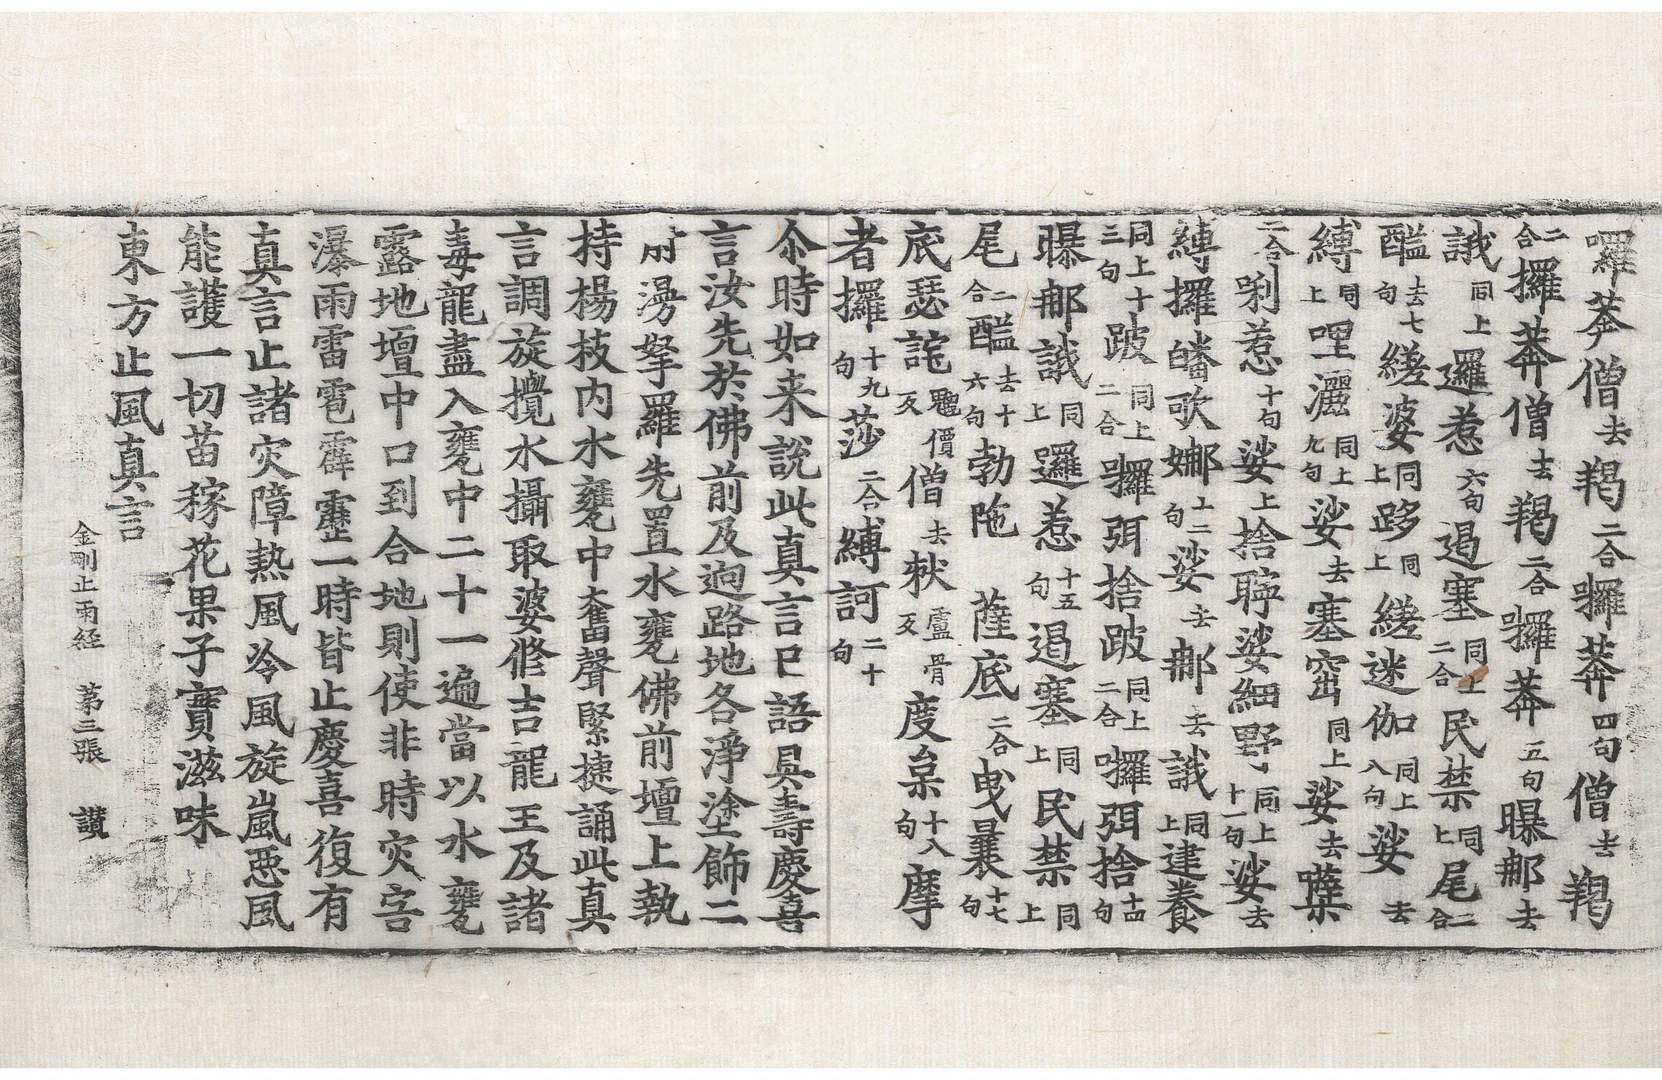 囉莽僧去羯二合囉莽四句僧去羯
二合囉莽僧去羯二合囉莽五句曝郍去
誐同上邏惹六句遏塞同上二合民禁同上尾二合
醯去七句縒婆同上跢同上縒迷伽同上八句娑去
縛同上哩灑同上九句娑去塞窣同上娑去蘖
二合唎惹十句娑上捨聹娑細野同上十一句娑去
縛攞皤歌娜十二句娑去郍去誐同上建養
同上十三句跛同上二合囉弭捨跛同上二合囉弭捨十四句
曝郍誐同上邏惹十五句遏塞同上民禁同上
尾二合醯去十六句勃陁薩底二合曳曩十七句
底瑟詫魑價反僧去紇盧骨反度枲十八句摩
者攞十九句莎二合縛訶二十句
尒時如来說此真言已語具壽慶喜
言汝先於佛前及逈路地各淨塗飾二
肘漫拏羅先置水甕佛前壇上執
持楊枝内水甕中奮聲緊捷誦此真
言調旋攪水攝取婆修吉龍王及諸
毒龍盡入甕中二十一遍當以水甕
露地壇中口到合地則使非時灾害
瀑雨雷雹霹靂一時皆止慶喜復有
真言止諸灾障熱風冷風旋嵐惡風
能護一切苗稼花果子實滋味
東方止風真言
金剛止雨経　第三張　讃